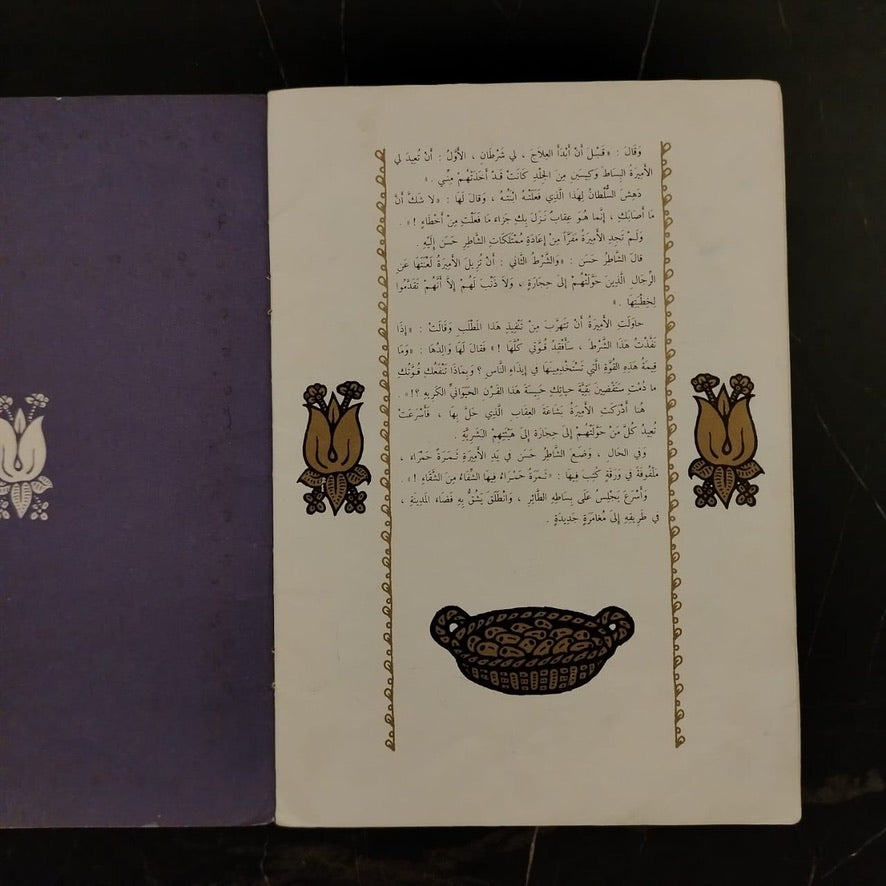 وَقَالَ : « قَبْلَ أَنْ أَبْدَأَ العِلاَجَ ، لي شَرْطَانِ ، الأَوَّلُ : أَنْ تُعِيدَ لي
الأَمِيرَةُ البِسَاطَ وَكِيسَيْنِ مِنَ الجِلْدِ كَانَتْ قَدْ أَخَذَتْهُمْ مِنِّي . »
دَهِشَ السُّلْطَانُ لِهَذَا الَّذِي فَعَلَتْهُ ابْنَتُهُ ، وَقَالَ لَهَا : « لا شَكَّ أَنَّ
مَا أَصَابَكِ ، إِنَّمَا هُوَ عِقَابٌ نَزَلَ بِكِ جَزَاءَ مَا فَعَلْتِ مِنْ أَخْطَاءٍ ! » .
وَلَمْ تَجِدِ الأَمِيرَةُ مَفَرًّا مِنْ إِعَادَةِ مُمْتَلَكَاتِ الشَّاطِرِ حَسَن إِلَيْهِ .
قالَ الشَّاطِرُ حَسَن : « وَالشَّرْطُ الثَّاني : أَنْ تُزِيلَ الأَمِيرَةُ لَعْنَتَهَا عَنِ
الرِّجَالِ الَّذِينَ حَوَّلَتْهُمْ إِلَى حِجَارَةٍ ، وَلاَ ذَنْبَ لَهُمْ إِلاَّ أَنَّهُمْ تَقَدَّمُوا
لِخِطْبَتِهَا . »
حَاوَلَتِ الأَمِيرَةُ أَنْ تَتَهَرَّبَ مِنْ تَنْفِيذِ هَذَا المَطْلَبِ وَقَالَتْ : « إِذَا
نَفَّذْتُ هَذَا الشَّرْطَ ، سَأَفْقِدُ قُوَّتي كُلَّهَا ! » فَقالَ لَهَا وَالِدُهَا : « وَمَا
قِيمَةُ هَذِهِ القُوَّةِ الَّتِي تَسْتَخْدِمِينَهَا في إِيذَاءِ النَّاسِ ؟ وَبِمَاذَا تَنْفَعُكِ قُوَّتُكِ
ما دُمْتِ سَتَقْضِينَ بَقِيَّةَ حَيَاتِكِ حَبِيسَةَ هَذَا القَرْنِ الحَيَوَانيِّ الكَرِيهِ ؟! » .
هُنَا أَدْرَكَتِ الأَمِيرَةُ بَشَاعَةَ العِقَابِ الَّذِي حَلَّ بِهَا ، فَأَسْرَعَتْ
تُعِيدُ كُلَّ مَنْ حَوَّلَتْهُمْ إِلَى حِجَارَةٍ إِلَى هَيْئَتِهِمْ البَشَرِيَّةِ .
وَفي الحَالِ ، وَضَعَ الشَّاطِرُ حَسَن في يَدِ الأَمِيرَةِ تَمْرَةً حَمْرَاءَ ،
مَلْفُوفَةً في وَرَقَةٍ كُتِبَ فِيهَا : « تَمْرَةٌ حَمْرَاءُ فِيهَا الشِّفَاءُ مِنَ الشَّقَاءِ ! » .
وَأَسْرَعَ يَجْلِسُ عَلَى بِسَاطِهِ الطَّائِرِ ، وَانْطَلَقَ يَشُقُّ بِهِ فَضَاءَ المَدِينَةِ ،
في طَرِيقِهِ إِلَى مُغَامَرَةٍ جَدِيدَةٍ .